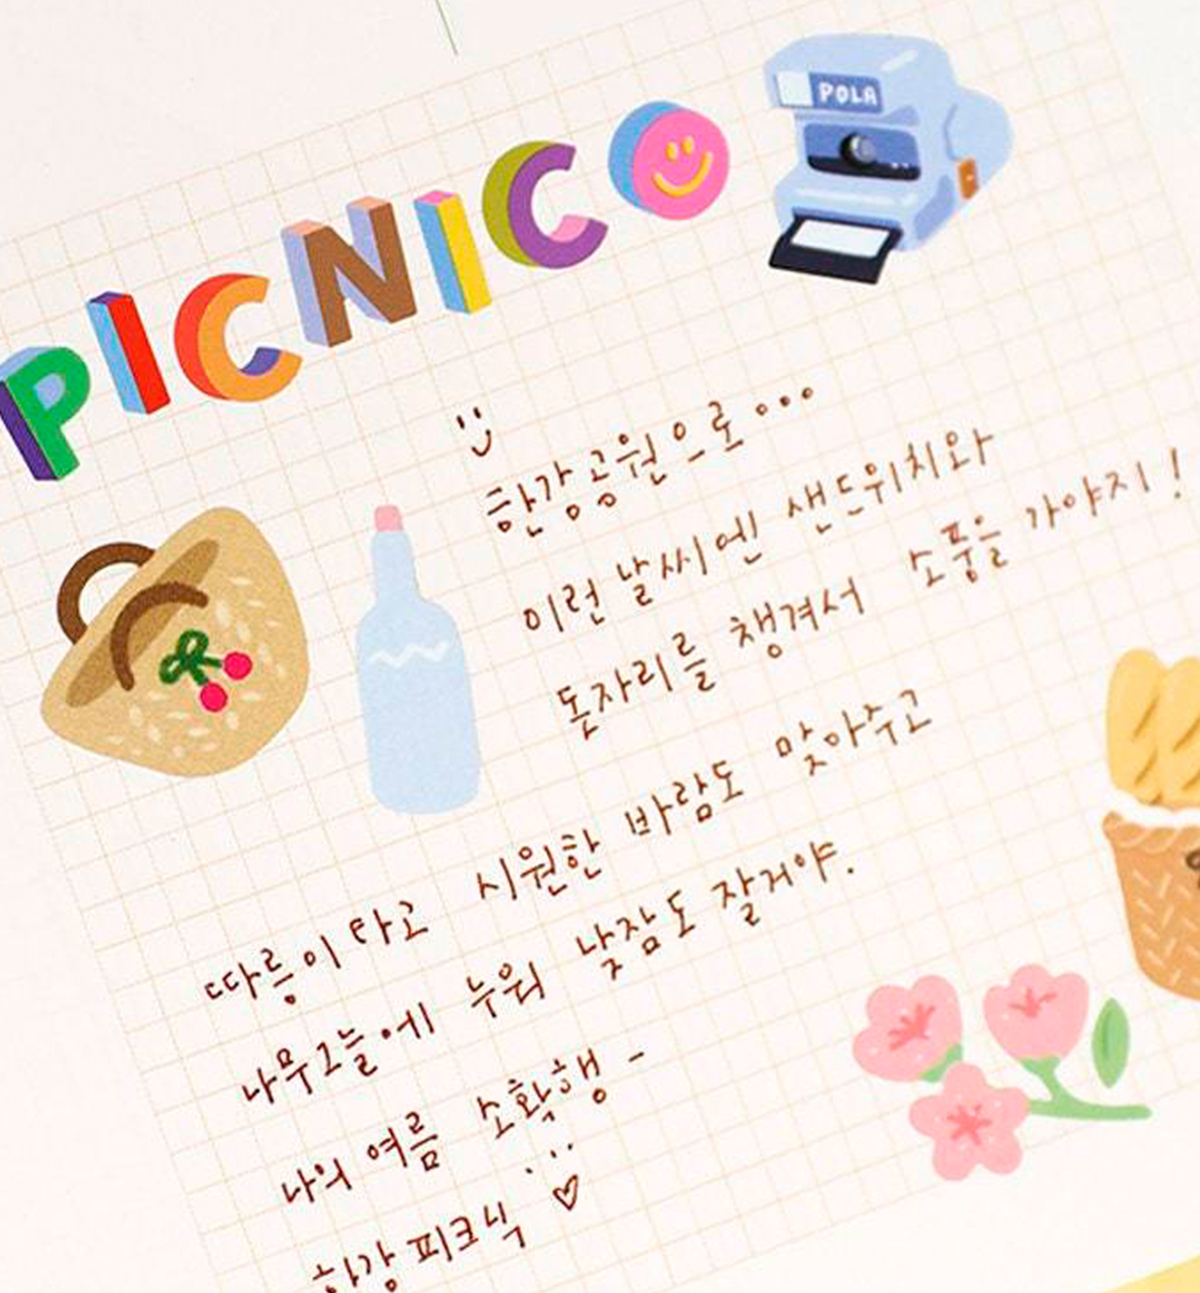 PICNIC
POLA
한강공원으로...
이런 날씨엔 샌드위치와
돗자리를 챙겨서 소풍을 가야지!
따릉이 타고 시원한 바람도 맞아주고
나무그늘에 누워 낮잠도 잘거야.
나의 여름 소확행 -
한강 피크닉 ♡